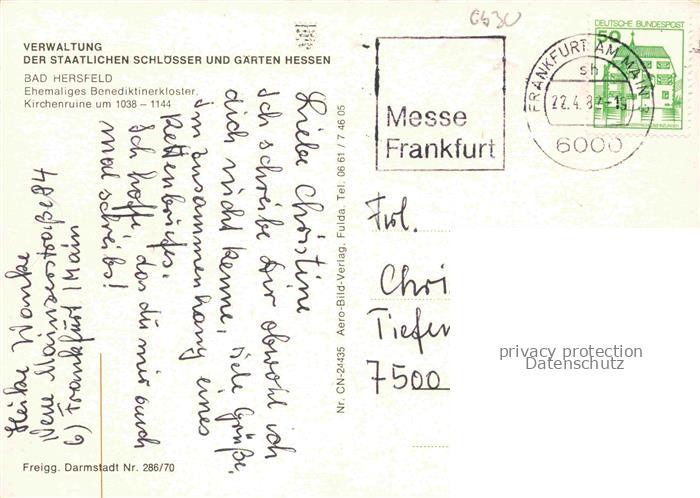 VERWALTUNG
DER STAATLICHEN SCHLÖSSER UND GÄRTEN HESSEN
BAD HERSFELD
Ehemaliges Benediktinerkloster.
Kirchenruine um 1038 – 1144
Liebe Christine
Ich schreibe Dir obwohl ich
dich nicht kenne, viele Grüße,
im zusammenhang eines
Kettenbriefes.
Ich hoffe, das du mir auch
mal schreibs!
Heike Wanke
Neue Mainzerstraße 84
6) Frankfurt / Main
Freigg. Darmstadt Nr. 286/70
Nr. CN-24435 Aero-Bild-Verlag. Fulda. Tel. 06 61 / 7 46 05
6430
Messe
Frankfurt
FRANKFURT AM MAIN
sh
22.4.8
6000
DEUTSCHE BUNDESPOST
50
Frl.
Chri
Tiefen
7500
privacy protection
Datenschutz